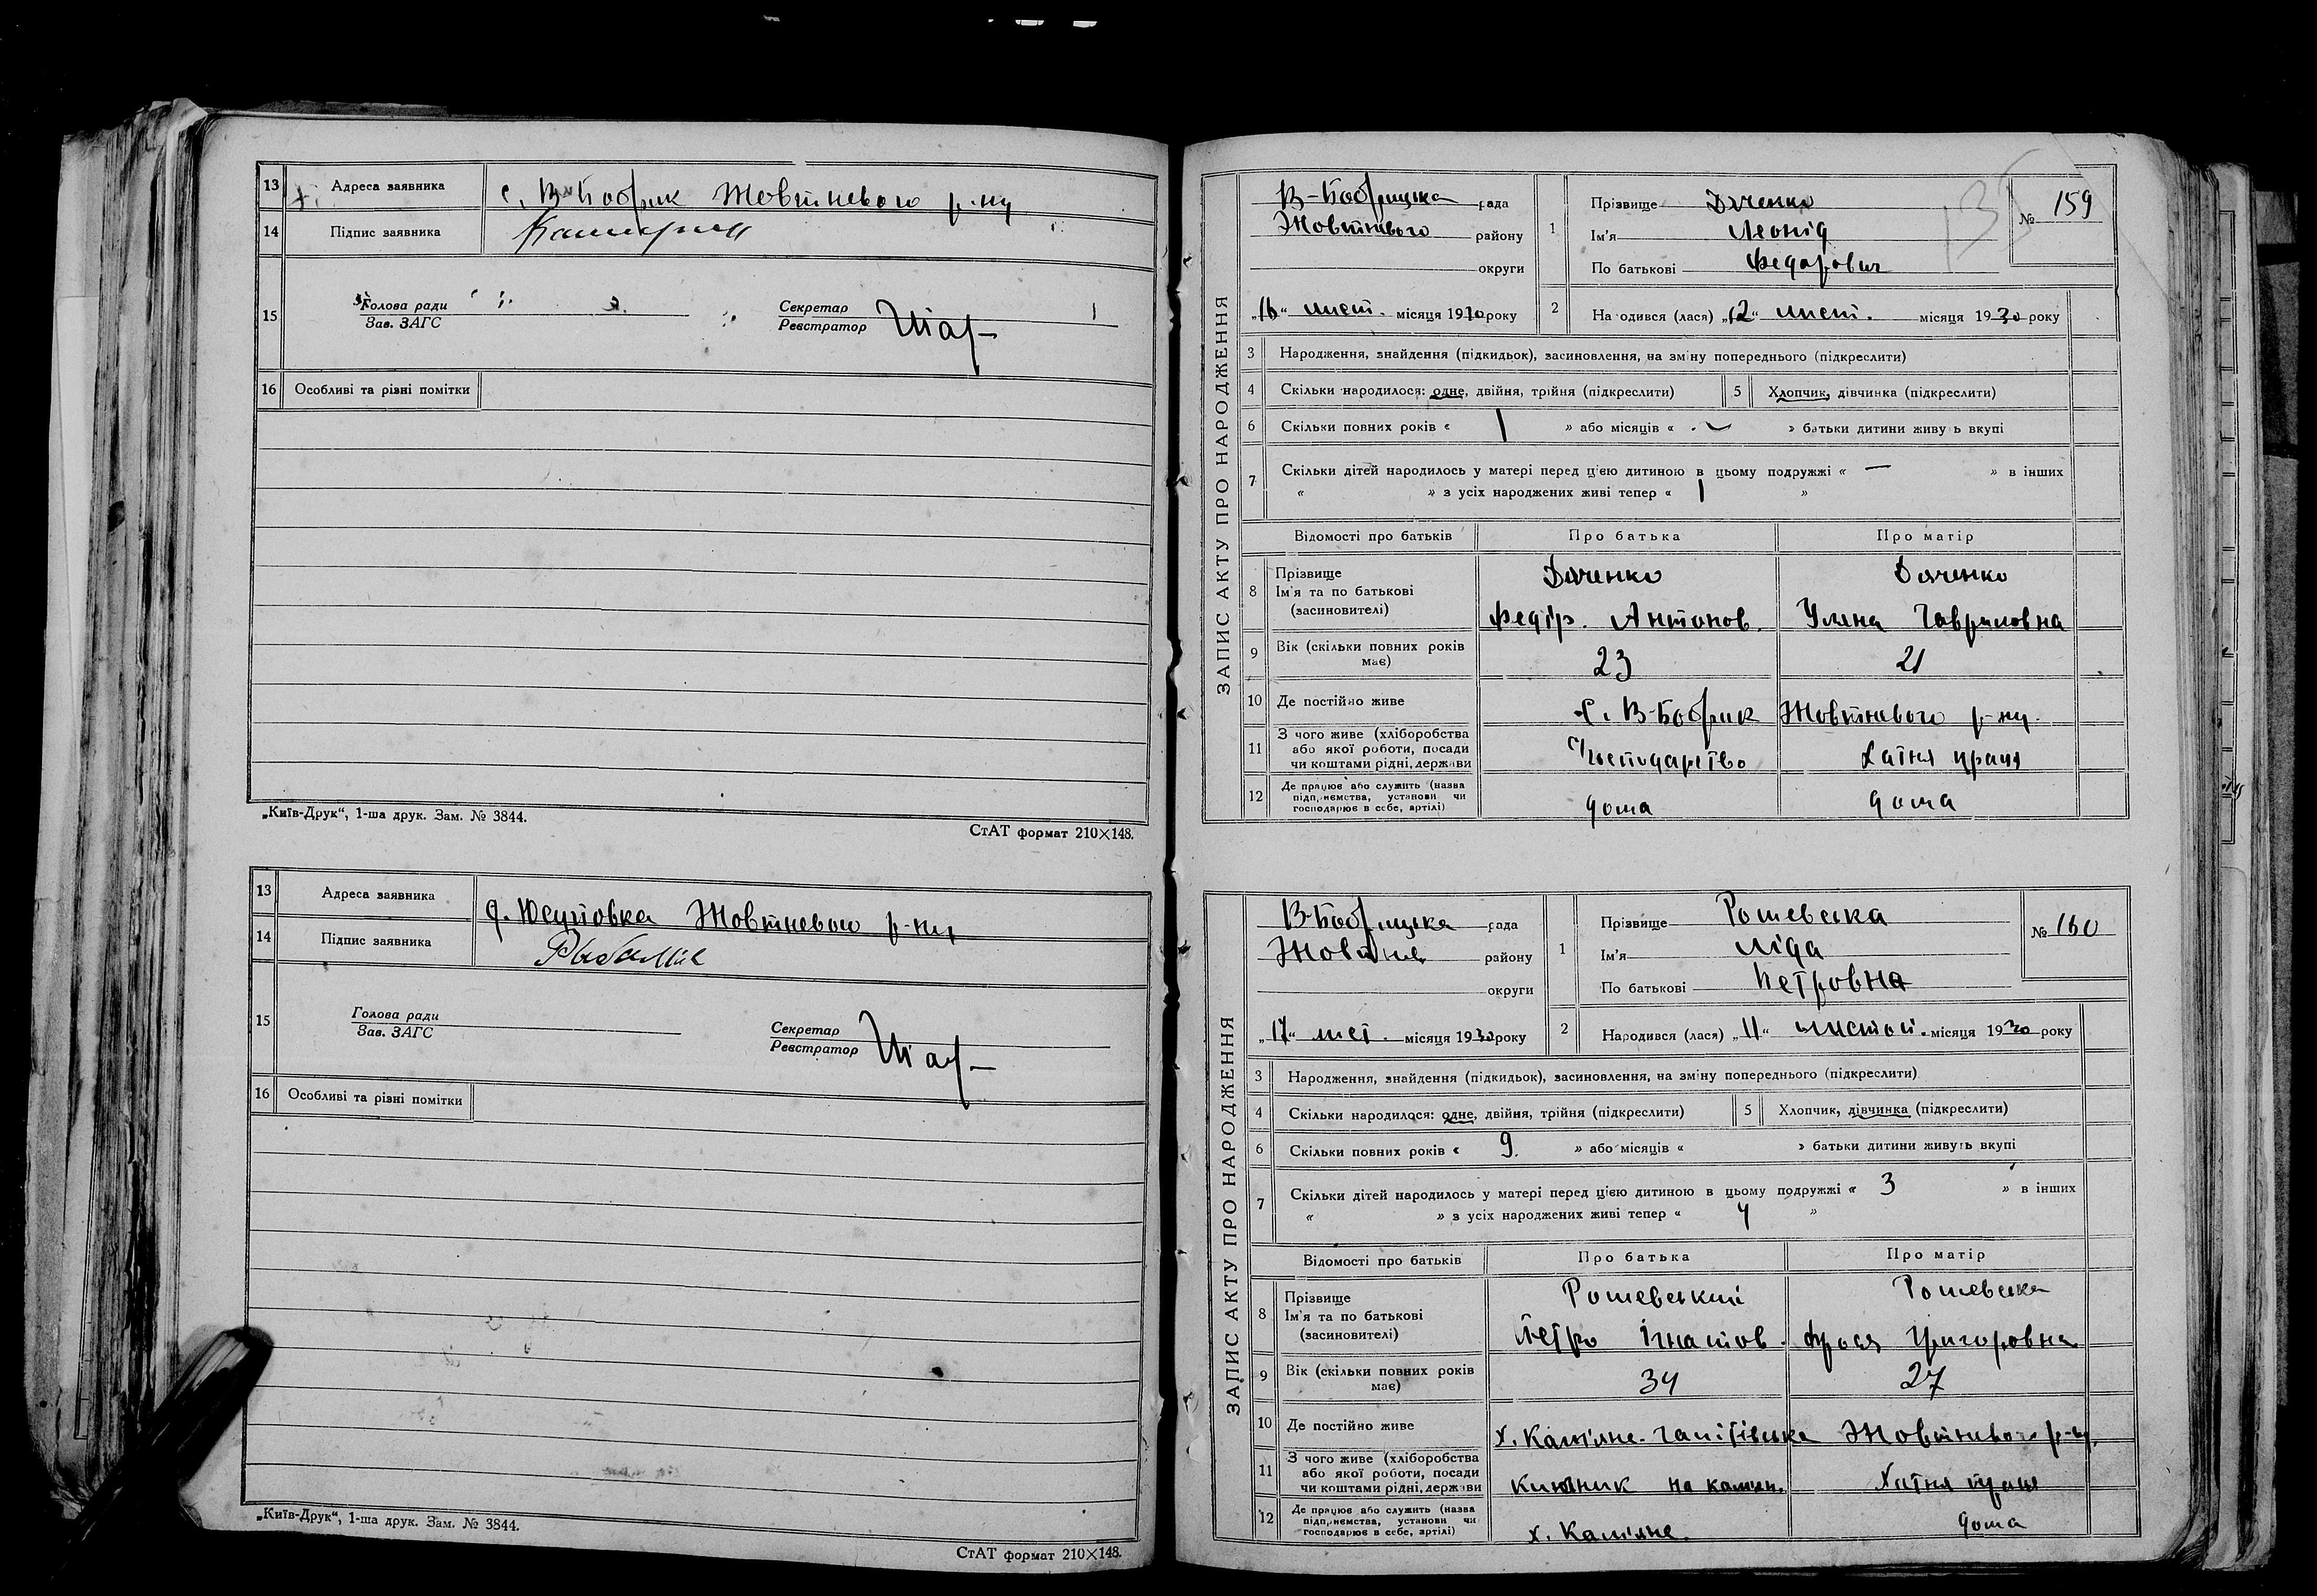 13 Адреса заявника с. В-Бобрик Жовтневого р-ну
14 Підпис заявника
15 Голова ради
Зав. ЗАГС
Секретар
Реєстратор Шар
16 Особливі та різні помітки
„Київ-Друк“, 1-ша друк. Зам. № 3844.
СтАТ формат 210×148.
13 Адреса заявника д. Юсуповка Жовтневого р-ну
14 Підпис заявника
15 Голова ради
Зав. ЗАГС
Секретар
Реєстратор Шар
16 Особливі та різні помітки
„Київ-Друк“, 1-ша друк. Зам. № 3844.
СтАТ формат 210×148.
ЗАПИС АКТУ ПРО НАРОДЖЕННЯ
В-Бобрицька рада
Жовтневого району
округи
„16“ лист. місяця 1930 року
1 Прізвище Дяченко
Ім'я Леонід
По батькові Федорович
№ 159
2 На одився (лася) „12“ лист. місяця 1930 року
3 Народження, знайдення (підкидьок), засиновлення, на зміну попереднього (підкреслити)
4 Скільки народилося: одне, двійня, трійня (підкреслити) 5 Хлопчик, дівчинка (підкреслити)
6 Скільки повних років « 1 » або місяців « - » батьки дитини живу ь вкупі
7 Скільки дітей народилось у матері перед цією дитиною в цьому подружжі « — » в інших
« » з усіх народжених живі тепер « 1 »
Відомості про батьків Про батька Про матір
8 Прізвище
Ім'я та по батькові
(засиновителі)
Дяченко Дяченко
Федір. Антонов. Уляна Гавриловна
9 Вік (скільки повних років має) 23 21
10 Де постійно живе с. В-Бобрик Жовтневого р-ну.
11 З чого живе (хліборобства
або якої роботи, посади
чи коштами рідні, держави
Господарство Хатня праця
12 Де працює або служить (назва
підприємства, установи чи
господарює в себе, артілі)
дома дома
ЗАПИС АКТУ ПРО НАРОДЖЕННЯ
В-Бобрицька рада
Жовтнев району
округи
„17“ лист. місяця 1930 року
1 Прізвище Рошевська
Ім'я Ліда
По батькові Петровна
№ 160
2 Народився (лася) „11“ листоп. місяця 1930 року
3 Народження, знайдення (підкидьок), засиновлення, на зміну попереднього (підкреслити)
4 Скільки народилося: одне, двійня, трійня (підкреслити) 5 Хлопчик, дівчинка (підкреслити)
6 Скільки повних років « 9. » або місяців « » батьки дитини живуть вкупі
7 Скільки дітей народилось у матері перед цією дитиною в цьому подружжі « 3 » в інших
« » з усіх народжених живі тепер « 4 »
Відомості про батьків Про батька Про матір
8 Прізвище
Ім'я та по батькові
(засиновителі)
Рошевський Рошевська
Петро Ігнатов. Фрося Григоровна
9 Вік (скільки повних років має) 34 27
10 Де постійно живе х. Каміяне- Жовтневого р-ну.
11 З чого живе (хліборобства
або якої роботи, посади
чи коштами рідні, держави
на Хатня праця
12 Де працює або служить (назва
підприємства, установи чи
господарює в себе, артілі)
х. Каміяне. дома